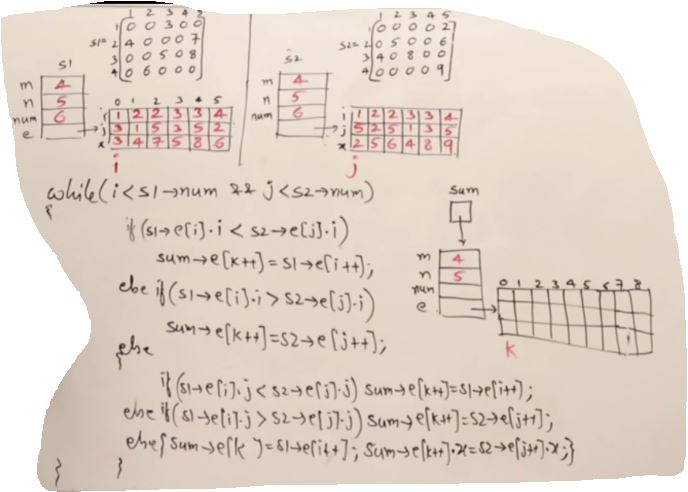 1 2 3 4 5
1 0 0 3 0 0
S1= 2 4 0 0 0 7
3 0 0 5 0 8
4 0 6 0 0 0
S1
m 4
n 5
num 6
e
0 1 2 3 4 5
i 1 2 2 3 3 4
j 3 1 5 3 5 2
x 3 4 7 5 8 6
i
1 2 3 4 5
1 0 0 0 0 2
S2= 2 0 5 0 0 6
3 4 0 8 0 0
4 0 0 0 0 9
S2
m 4
n 5
num 6
i 1 2 2 3 3 4
j 5 2 5 1 3 5
x 2 5 6 4 8 9
j
while(i<S1→num && j<S2→num)
{
if(S1→e[i].i < S2→e[j].i)
sum→e[k++]=S1→e[i++];
else if(S1→e[i].i > S2→e[j].i)
sum→e[k++]=S2→e[j++];
else
{
if(S1→e[i].j < S2→e[j].j) sum→e[k++]=S1→e[i++];
else if(S1→e[i].j > S2→e[j].j) sum→e[k++]=S2→e[j++];
else{ sum→e[k]=S1→e[i++]; sum→e[k++].x=S2→e[j++].x;}
} }
sum
m 4
n 5
num
e
0 1 2 3 4 5 6 7 8
k